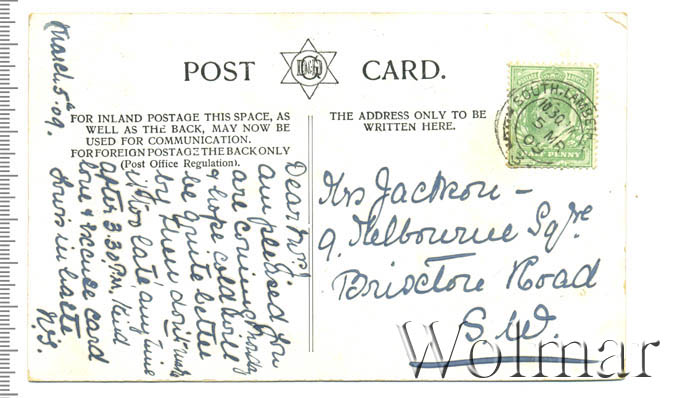 March 5th 09.
POST CARD.
FOR INLAND POSTAGE THIS SPACE, AS
WELL AS THE BACK, MAY NOW BE
USED FOR COMMUNICATION.
FOR FOREIGN POSTAGE THE BACK ONLY
(Post Office Regulation).
THE ADDRESS ONLY TO BE
WRITTEN HERE.
Dear Mrs J
am pleased you
are coming Monday
& hope cold will
be quite better
by then don't make
it too late, any time
after 3.30 P.M. Kind
love & excuse card
Yours in haste
N.J.
Mrs Jackson -
9. Melbourne Sqre
Brixton Road
S.W.
SOUTH-LAMBETH
10.30
5 MR
09
HALFPENNY
Wolmar